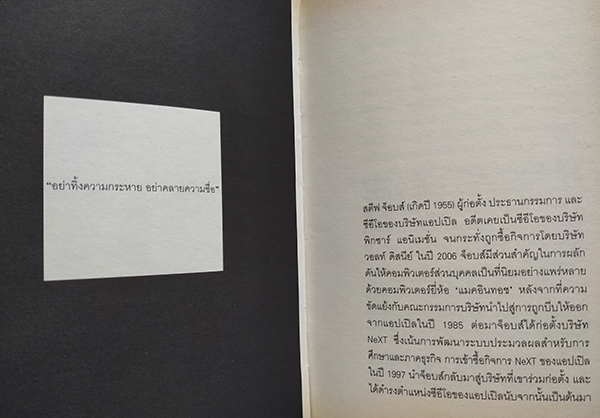 “อย่าทิ้งความกระหาย อย่าคลายความซื่อ”
สตีฟ จ็อบส์ (เกิดปี 1955) ผู้ก่อตั้ง ประธานกรรมการ และ
ซีอีโอของบริษัทแอปเปิล อดีตเคยเป็นซีอีโอของบริษัท
พิกซาร์ แอนิเมชั่น จนกระทั่งถูกซื้อกิจการโดยบริษัท
วอลท์ ดิสนีย์ ในปี 2006 จ็อบส์มีส่วนสำคัญในการผลัก
ดันให้คอมพิวเตอร์ส่วนบุคคลเป็นที่นิยมอย่างแพร่หลาย
ด้วยคอมพิวเตอร์ยี่ห้อ “แมคอินทอช” หลังจากที่ความ
ขัดแย้งกับคณะกรรมการบริษัทนำไปสู่การถูกบีบให้ออก
จากแอปเปิลในปี 1985 ต่อมาจ็อบส์ได้ก่อตั้งบริษัท
NeXT ซึ่งเน้นการพัฒนาระบบประมวลผลสำหรับการ
ศึกษาและภาคธุรกิจ การเข้าซื้อกิจการ NeXT ของแอปเปิล
ในปี 1997 นำจ็อบส์กลับมาสู่บริษัทที่เขาร่วมก่อตั้ง และ
ได้ดำรงตำแหน่งซีอีโอของแอปเปิลนับจากนั้นเป็นต้นมา